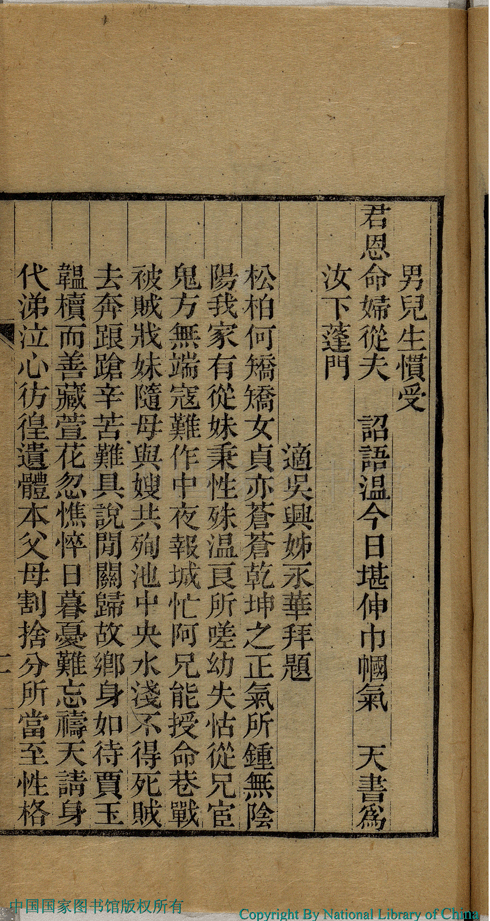 男兒生慣受
君恩命婦從夫　詔語温今日堪伸巾幗氣　天書爲
汝下蓬門
適吳興姊永華拜題
松柏何矯矯女貞亦蒼蒼乾坤之正氣所鍾無陰
陽我家有從妹秉性殊温良所嗟幼失怙從兄宦
鬼方無端寇難作中夜報城忙阿兄能授命巷戰
被賊戕妹隨母與嫂共殉池中央水淺不得死賊
去奔踉蹌辛苦難具說閒關歸故鄉身如待賈玉
韞櫝而善藏萱花忽憔悴日暮憂難忘禱天請身
代涕泣心彷徨遺體本父母割捨分所當至性格
中国国家图书馆版权所有
Copyright By National Library of China